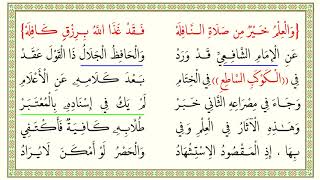 {وَالْعِلْمُ خَيْرٌ مِن صَلَاةِ النَّافِلَهْ فَقَدْ غَذَا اللهُ بِرِزْقٍ كَافِلَهْ}
عَنِ الْإِمَامِ الشَّافِعِيِّ قَدْ وَرَدْ وَالْحَافِظُ الْجَلَالُ ذَا الْقَوْلَ عَقَدْ
فِي ((الْكَوْكَبِ السَّاطِعِ)) فِي الْخِتَامِ بَعْدَ كَلَامِهِ عَنِ الْأَعْلَامِ
وَجَاءَ فِي مِصْرَاعِهِ الثَّانِي خَبَرْ لَمْ يَكُ فِي إِسْنَادِهِ بِالْمُعْتَبَرْ
وَهَٰذِهِ الْآثَارُ فِي الْعِلْمِ وَفِي طُلَّابِهِ كَافِيَةٌ فَأَكْتَفِي
بِهَا، إِذِ الْمَقْصُودُ الِاسْتِشْهَادُ وَالْحَصْرُ لَوْ أَمْكَنَ لَا يُرَادُ